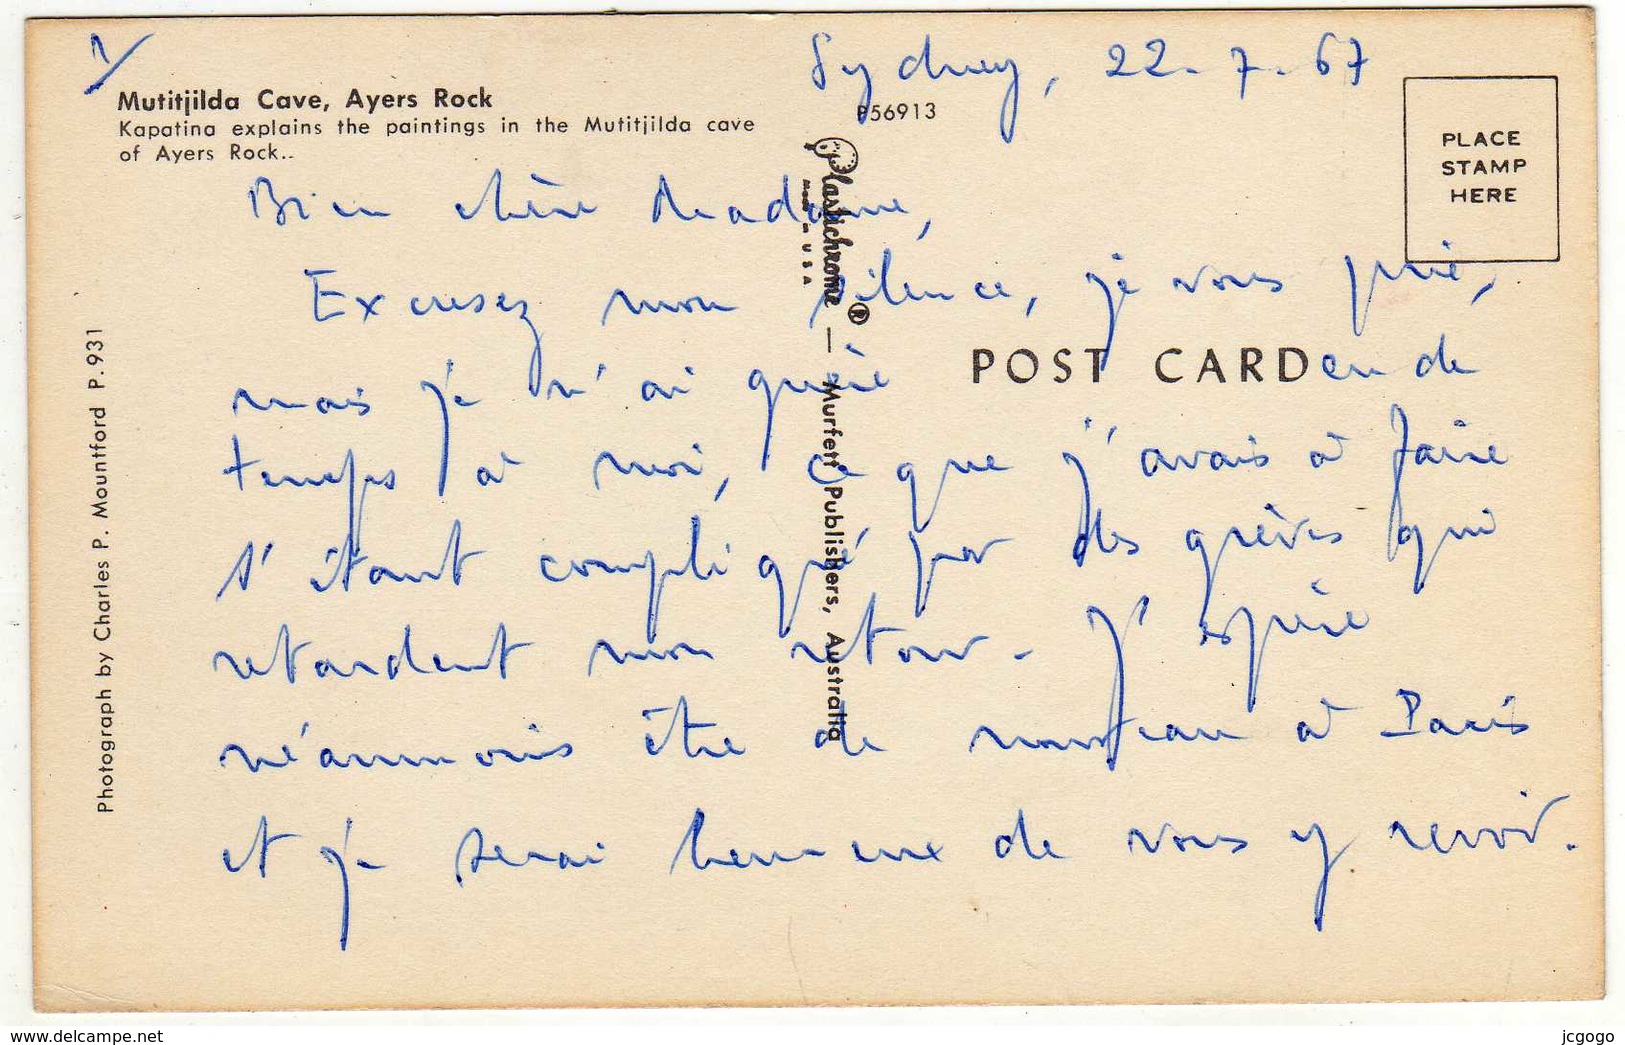 1/
Sydney, 22-7-67
Mutitjilda Cave, Ayers Rock
Kapatina explains the paintings in the Mutitjilda cave
of Ayers Rock..
P56913
PLACE
STAMP
HERE
Bien chère Madame,
Excusez mon silence, je vous prie,
mais je n'ai guère eu de
temps à moi, ce que j'avais à faire
s'étant compliqué par des grèves qui
retardent mon retour. J'espère
néanmoins être de nouveau à Paris
et je serai heureux de vous y revoir.
POST CARD
Plastichrome ® — Murfett Publishers, Australia
made in USA
Photograph by Charles P. Mountford P.931
www.delcampe.net
jcgogo